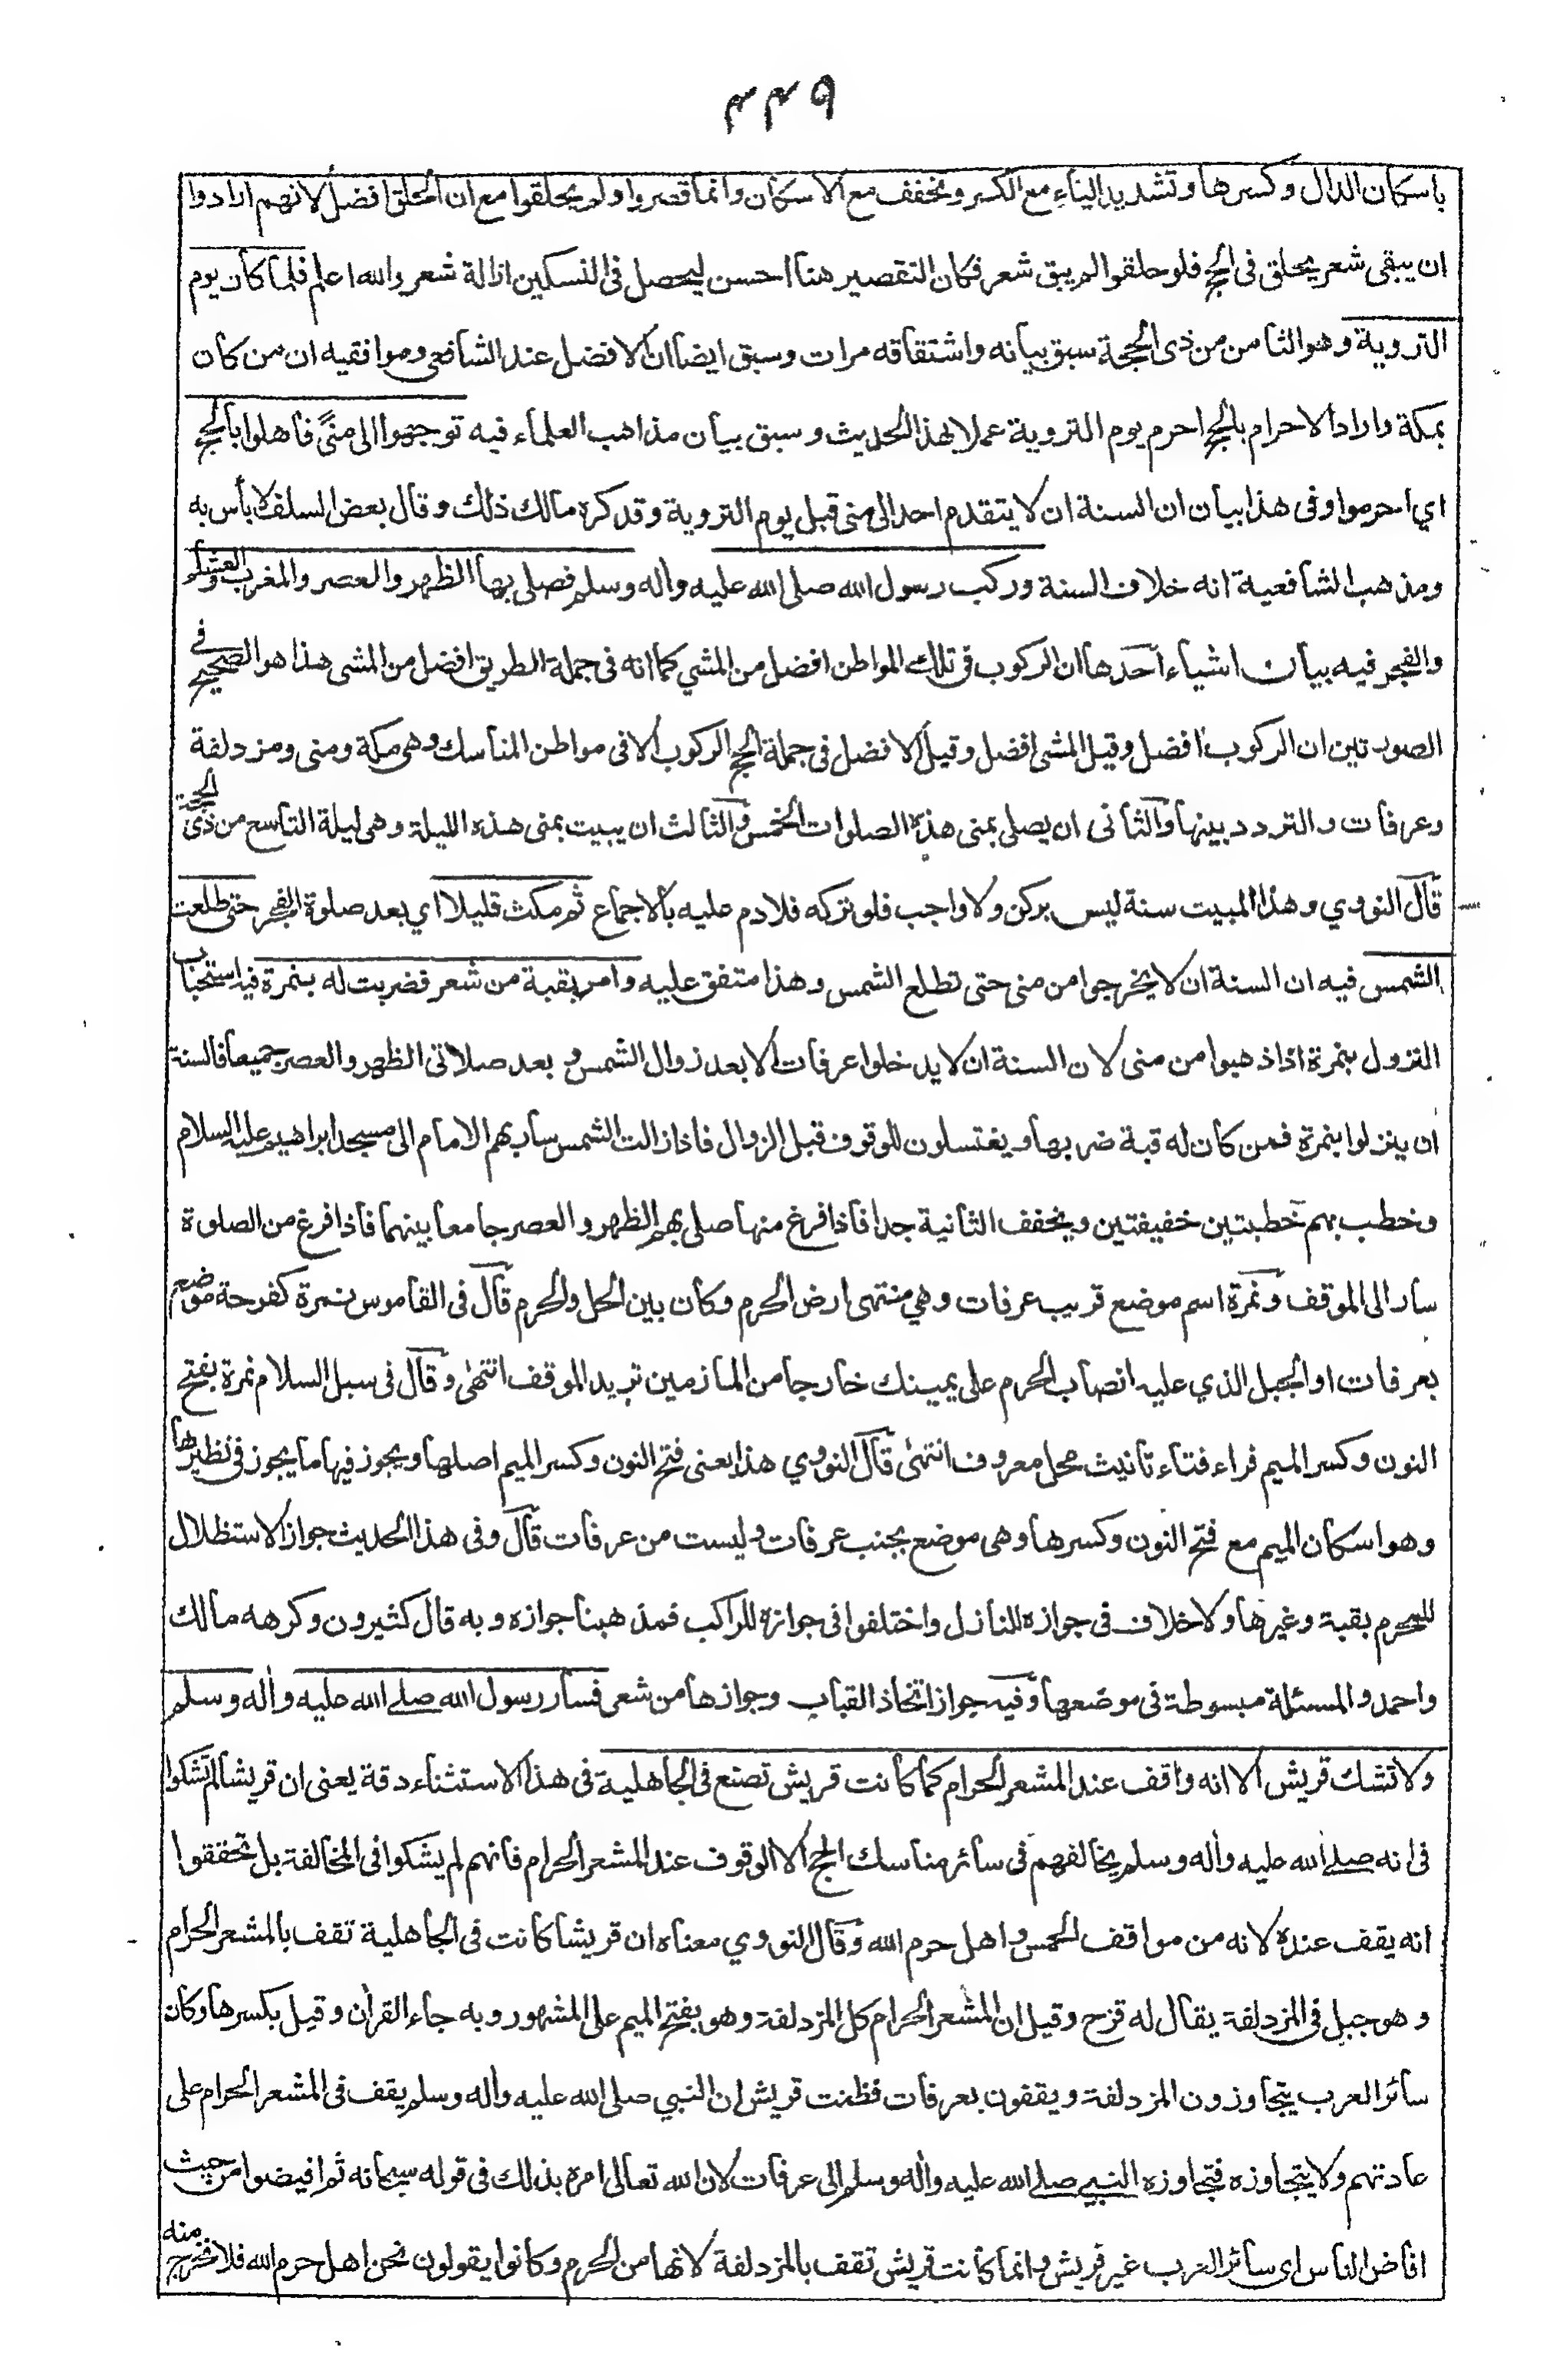 ٤٤٩
باسكان الدال وكسرها وتشديد الياء مع الكسر وتخفف مع الاسكان وانما قصروا ولم يحلقوا مع ان الحلق افضل لانهم ارادوا
ان يبقى شعر يحلق فى الحج فلو حلقوا لم يبق شعر فكان التقصير هنا احسن ليحصل فى النسكين ازالة شعر والله اعلم فلما كان يوم
التروية وهو الثامن من ذى الحجة سبق بيانه واشتقاقه مرات وسبق ايضا ان الافضل عند الشافعى وموافقيه ان من كان
بمكة واراد الاحرام بالحج احرم يوم التروية عملا بهذا الحديث وسبق بيان مذاهب العلماء فيه توجهوا الى منىً فاهلوا بالحج
اي احرموا وفى هذا بيان ان السنة ان لا يتقدم احد الى منى قبل يوم التروية وقد كره مالك ذلك وقال بعض السلف لا بأس به
ومذهب الشافعية انه خلاف السنة وركب رسول الله صلى الله عليه وأله وسلم فصلى بها الظهر والعصر والمغرب والعشاء
والفجر فيه بيان اشياء احدها ان الركوب فى تلك المواطن افضل من المشي كما انه فى جملة الطريق افضل من المشى هذا هو الصحيح فى
الصورتين ان الركوب افضل وقيل المشى افضل وقيل الافضل فى جملة الحج الركوب الا فى مواطن المناسك وهى مكة ومنى ومزدلفة
وعرفات والتردد بينها والثانى ان يصلى بمنى هذه الصلوات الخمس والثالث ان يبيت بمنى هذه الليلة وهى ليلة التاسع من ذى الحجة
قال النووي وهذا المبيت سنة ليس بركن ولا واجب فلو تركه فلا دم عليه بالاجماع ثم مكث قليلا اي بعد صلوة الفجر حتى طلعت
الشمس فيه ان السنة ان لا يخرجوا من منى حتى تطلع الشمس وهذا متفق عليه وامر بقبة من شعر فضربت له بنمرة فيه استحباب
النزول بنمرة اذا ذهبوا من منى لان السنة ان لا يدخلوا عرفات الا بعد زوال الشمس و بعد صلاتى الظهر والعصر جميعا فالسنة
ان ينزلوا بنمرة فمن كان له قبة ضربها ويغتسلون للوقوف قبل الزوال فاذا زالت الشمس سار بهم الامام الى مسجد ابراهيم عليه السلام
وخطب بهم خطبتين خفيفتين ويخفف الثانية جدا فاذا فرغ منها صلى بهم الظهر والعصر جامعا بينهما فاذا فرغ من الصلوة
سار الى الموقف ونمرة اسم موضع قريب عرفات وهي منتهى ارض الحرم وكان بين الحل والحرم قال فى القاموس نمرة كفرحة موضع
بعرفات او الجبل الذي عليه انصاب الحرم على يمينك خارجا من المازمين تريد الموقف انتهى وقال فى سبل السلام نمرة بفتح
النون وكسر الميم فراء فتاء تانيث محل معروف انتهى قال النووي هذا يعنى فتح النون وكسر الميم اصلها ويجوز فيها ما يجوز فى نظيرها
وهو اسكان الميم مع فتح النون وكسرها وهى موضع بجنب عرفات وليست من عرفات قال وفى هذا الحديث جواز الاستظلال
للمحرم بقبة وغيرها ولا خلاف فى جوازه للنازل واختلفوا فى جوازه للراكب فمذهبنا جوازه وبه قال كثيرون وكرهه مالك
واحمد والمسئلة مبسوطة فى موضعها وفيه جواز اتخاذ القباب وجوازها من شعر فسار رسول الله صلى الله عليه وأله وسلم
ولا تشك قريش الا انه واقف عند المشعر الحرام كما كانت قريش تصنع فى الجاهلية فى هذا الاستثناء دقة يعنى ان قريشا لم تشكوا
فى انه صلى الله عليه وأله وسلم يخالفهم فى سائر مناسك الحج الا الوقوف عند المشعر الحرام فانهم لم يشكوا فى المخالفة بل تحققوا
انه يقف عنده لانه من مواقف الحمس واهل حرم الله وقال النووي معناه ان قريشا كانت فى الجاهلية تقف بالمشعر الحرام
وهو جبل فى المزدلفة يقال له قزح وقيل ان المشعر الحرام كل المزدلفة وهو بفتح الميم على المشهور وبه جاء القرأن وقيل بكسرها وكان
سائر العرب يتجاوزون المزدلفة ويقفون بعرفات فظنت قريش ان النبي صلى الله عليه وأله وسلم يقف فى المشعر الحرام على
عادتهم ولا يتجاوزه فتجاوزه النبي صلى الله عليه وأله وسلم الى عرفات لان الله تعالى امره بذلك فى قوله سبحانه ثم افيضوا من حيث
افاض الناس اى سائر العرب غير قريش وانما كانت قريش تقف بالمزدلفة لانها من الحرم وكانوا يقولون نحن اهل حرم الله فلا نخرج منه